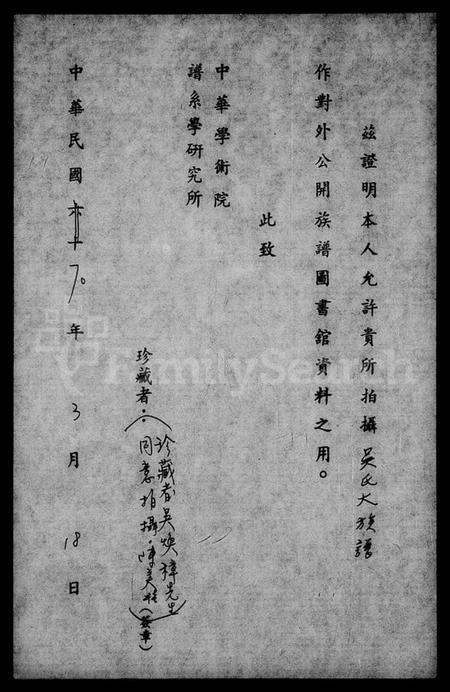 茲證明本人允許貴所拍攝吳氏大族譜
作對外公開族譜圖書舘資料之用。
此致
中華學術院
譜系學研究所
珍藏者：(珍藏者吳煥樟先生
同意拍攝。陳美)(簽章)
中華民國六十70年3月18日
FamilySearch